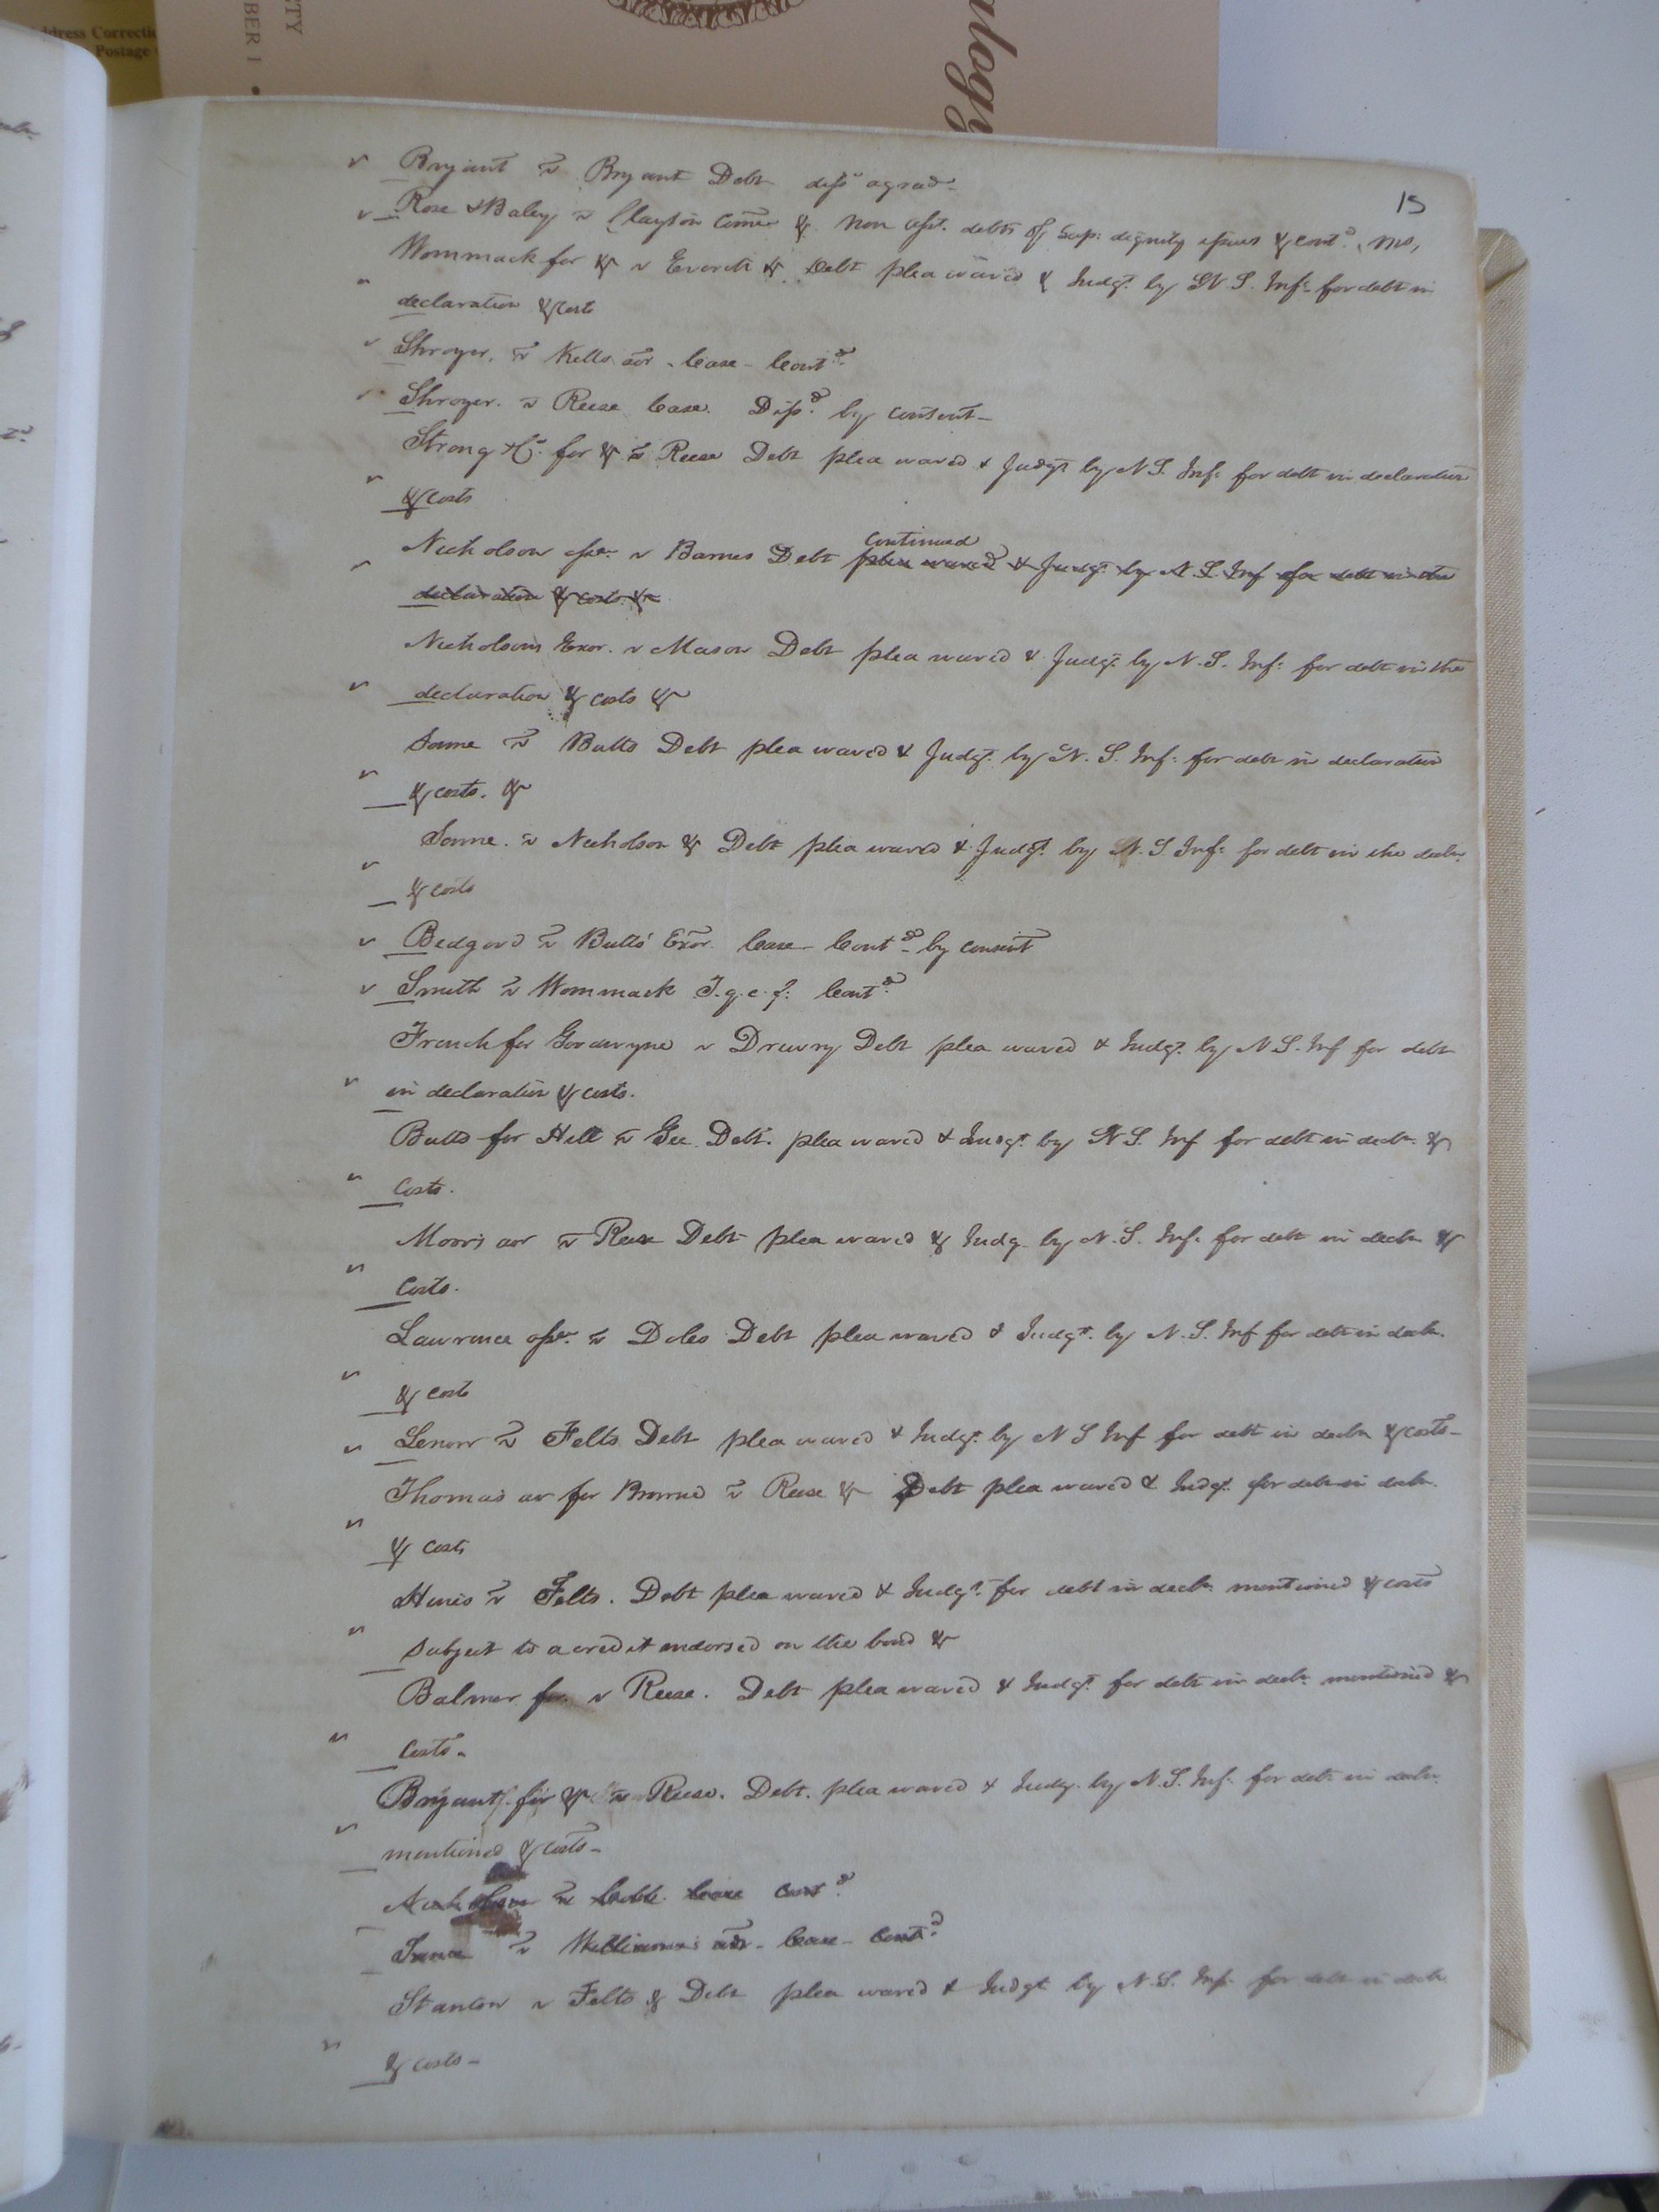 dress Correctio
Postage
CTY
BER 1 •
alogy
15
Bryant v Bryant Debt diss.d agreed
Rose & Baley v Clayton Comee & non asst. debts of Sup: dignity issues & cont.d
Wommack for & v Everett & Debt plea waved & Judgt. by N. S. Inf: for debt in
declaration & costs
Shroyer v Kello aor Case Cont.d
Shroyer v Reese Case. Diss.d by consent
Strong & Co. for & v Reese Debt plea waved & Judgt by N S. Inf: for debt in declaration
& costs
Nicholson v Barnes Debt continued plea waved & Judgt. by N. S. Inf for debt in the
declaration & costs &
Nicholsons Exor. v Mason Debt plea waved & Judgt by N. S. Inf: for debt in the
declaration & costs &
Same v Butts Debt plea waved & Judgt. by N. S. Inf: for debt in declaration
& costs. &
Same v Nicholson & Debt plea waved & Judgt. by N. S. Inf: for debt in the decln.
& costs
v Butts' Exor. Case Cont.d by consent
Smith v Wommack Cont.d
French for Goodwyne v Drewry Debt plea waved & Judgt. by N S. Inf for debt
in declaration & costs.
Butts for Hill v Gee Debt. plea waved & Judgt. by N S. Inf for debt in decln. &
Costs.
Moors aor v Reese Debt plea waved & Judg by N. S. Inf: for debt in decln &
Costs.
Lawrence v Doles Debt plea waved & Judgt. by N. S. Inf for debt in decln.
& costs
Lenow v Felts Debt plea waved & Judgt. by N S Inf for debt in decln & costs
Thomas aor for Browne v Reese & Debt plea waved & Judgt. for debt in decln.
& costs
Hines v Felts. Debt plea waved & Judgt. for debt in decln mentioned & costs
subject to a credit endorsed on the bond &
Balmer for v Reese. Debt plea waved & Judgt. for debt in decln mentioned &
Costs
Bryant for & v Reese. Debt. plea waved & Judg. by N. S. Inf. for debt in decln.
mentioned & costs
Nicholson v Case cont.d
Same v aor Case Cont.d
Stanton v Felts & Debt plea waved & Judgt by N. S. Inf. for debt in decln
& costs